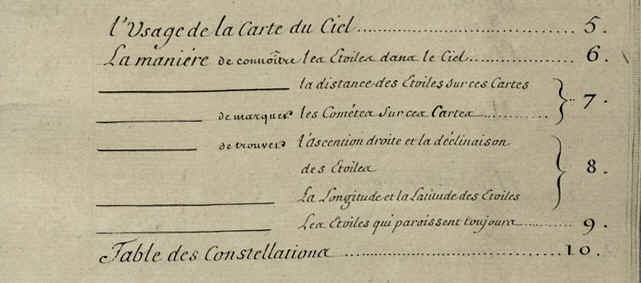 l'Usage de la Carte du Ciel ........ 5.
La maniére de connoître les Etoiles dans le Ciel ........ 6.
la distance des Etoiles sur ces Cartes
de marquer les Cométes sur ces Cartes ........ 7.
de trouver l'ascention droite et la déclinaison
des Etoiles 8.
La Longitude et la Latitude des Etoiles
Les Etoiles qui paroissent toujours ........ 9.
Table des Constellations ........ 10.